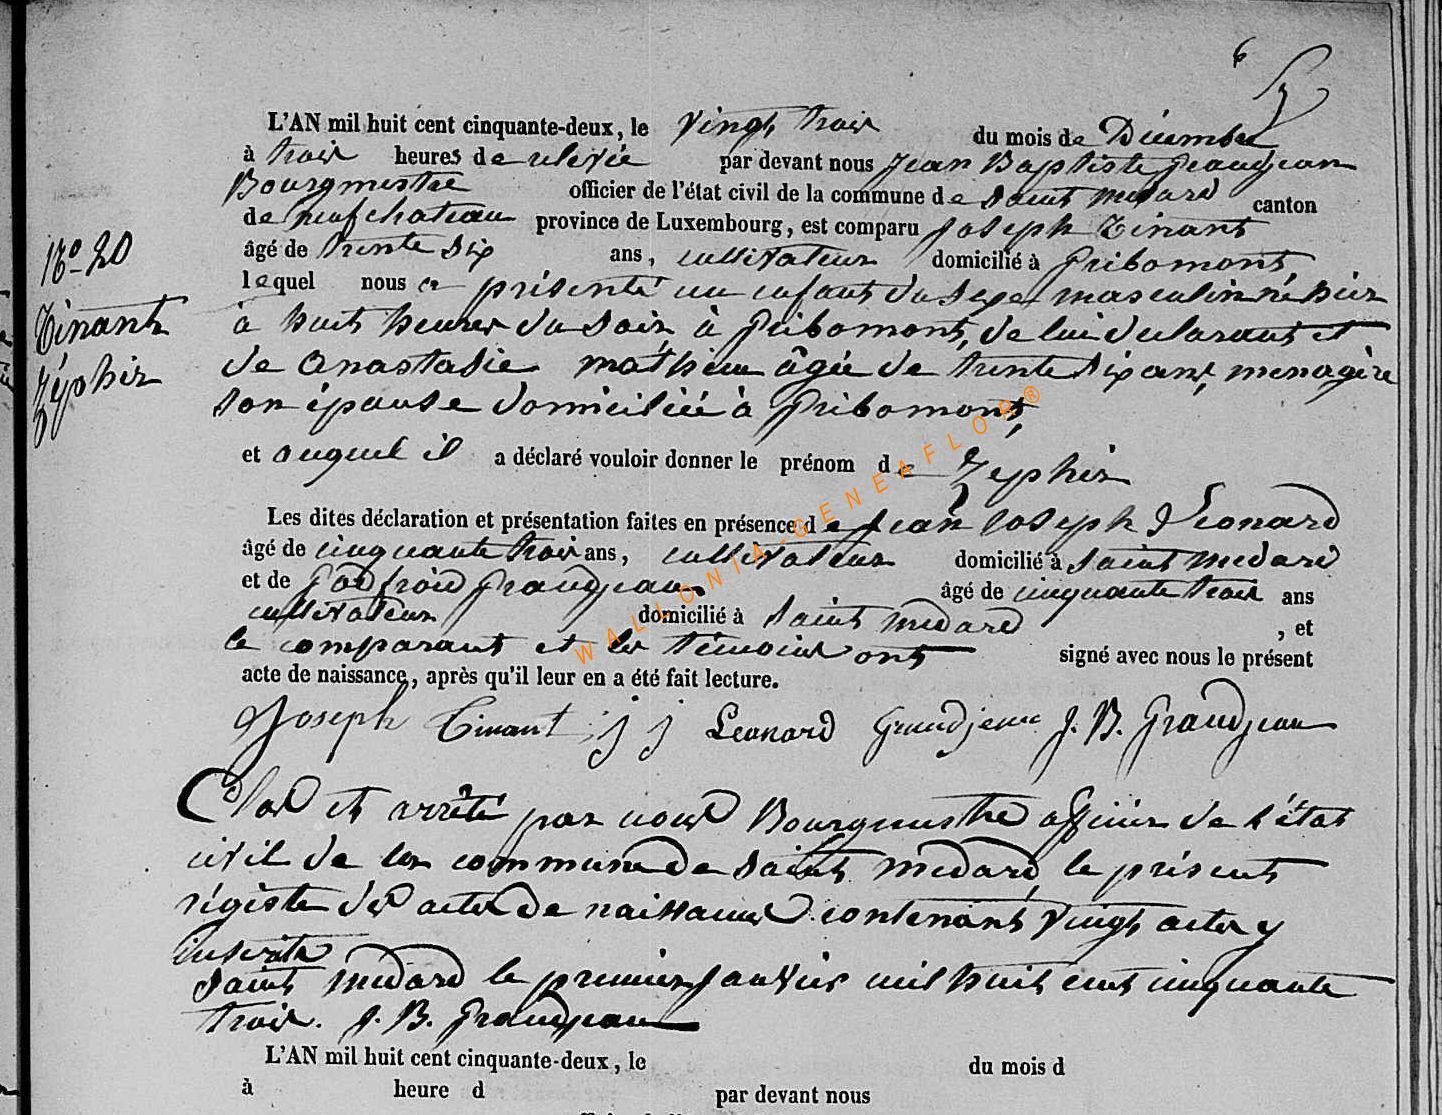 6
L'AN mil huit cent cinquante-deux, le vingt trois du mois de Décembre
à trois heures de relevée par devant nous Jean Baptiste Grandjean
Bourgmestre officier de l'état civil de la commune de Saint Medard canton
de neufchateau province de Luxembourg, est comparu Joseph Tinant
âgé de trente six ans, cultivateur domicilié à Gribomont,
lequel nous a présenté un enfant du sexe masculin né hier
à huit heures du soir à Gribomont, de lui déclarant et
de Anastasie mathieu âgée de trente six ans, menagère
son épouse domiciliée à Gribomont,
et auquel il a déclaré vouloir donner le prénom de Zéphir
Les dites déclaration et présentation faites en présence de Jean Joseph Léonard
âgé de cinquante trois ans, cultivateur domicilié à Saint medard
et de Godfroid Grandjean âgé de cinquante trois ans
cultivateur domicilié à Saint medard , et
le comparant et les témoins ont signé avec nous le présent
acte de naissance, après qu'il leur en a été fait lecture.
Joseph Tinant j j Leonard Grandjean J. B. Grandjean
Nº 20
Tinant
Zéphir
Clos et arrêté par nous Bourgmestre officier de l'état
civil de la commune de Saint medard le présent
régistre des actes de naissances contenant vingt actes y
inscrits
Saint medard le premier Janvier mil huit cent cinquante
trois. J. B. Grandjean
L'AN mil huit cent cinquante-deux, le du mois d
à heure d par devant nous
WALLONIA-GENEAFLOR®